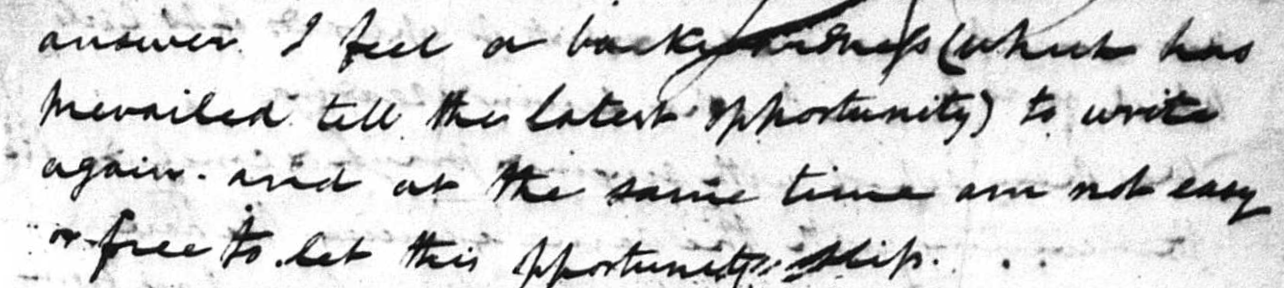 answer. I feel a backwardness (which has
prevailed till the latest opportunity) to write
again. and at the same time am not easy
or free to let this opportunity slip.